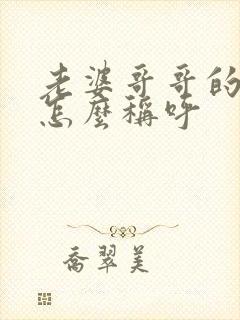 老婆哥哥的
怎麼稱呼
喬翠美